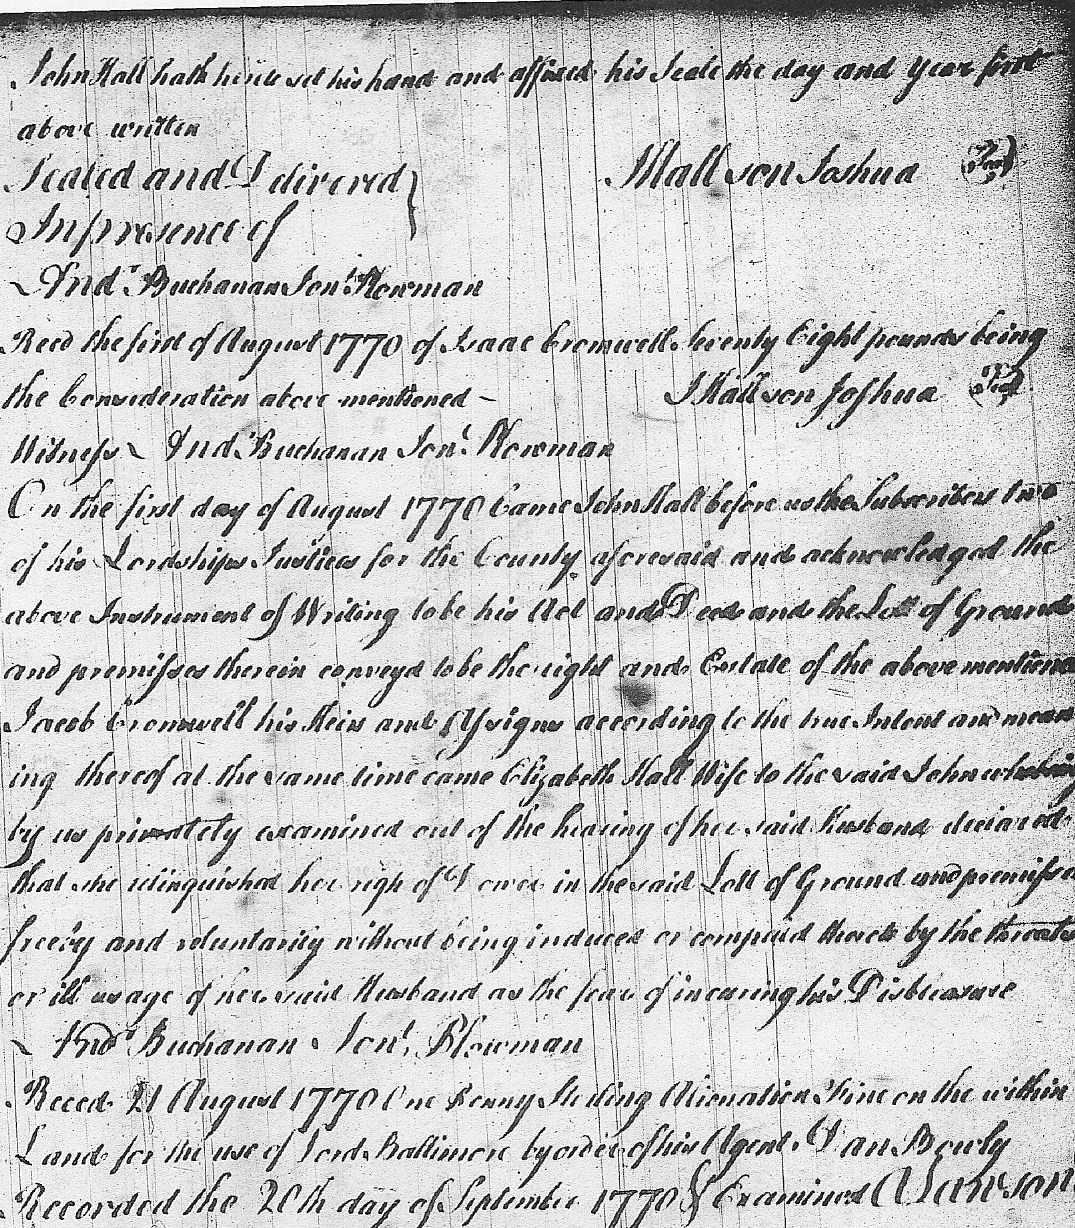 John Hall hath hereto set his hand and affixed his Seale the day and year first
above written
Sealed and Delivered } JHall son Joshua (Seal)
In presence of
And.r Buchanan Jon.t Plowman
Recd the first of August 1770 of Isaac Cromwell Seventy Eight pounds being
the Consideration above mentioned – JHall son Joshua (Seal)
Witness And.r Buchanan Jon.t Plowman
On the first day of August 1770 Came John Hall before us the Subscribers two
of his Lordships Justices for the County aforesaid and acknowledged the
above Instrument of Writing to be his Act and Deed and the Lott of Ground
and premisses therein conveyd to be the right and Estate of the above mentioned
Jacob Cromwell his Heirs and Assigns according to the true Intent and mean
ing thereof at the same time came Elizabeth Hall Wife to the said John who being
by us privately examined out of the hearing of her said Husband declared
that she relinquished her righ of Dower in the said Lott of Ground and premisses
freely and voluntarily without being induced or compeld thereto by the threats
or ill usage of her said Husband as the fear of incuring his Displeasure
And.r Buchanan Jon.t Plowman
Reced 21 August 1770 One Penny Sterling Alienation Fine on the within
Land for the use of Lord Baltimore by order of his Agent Dan Bowly
Recorded the 20th day of September 1770 & Examined Lawson